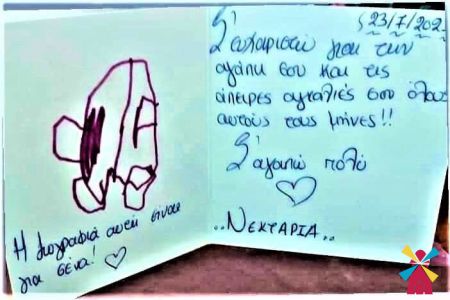 Η ζωγραφιά αυτή είναι
για σένα! ♡
23/7/202
Σ' ευχαριστώ για την
αγάπη σου και τις
άπειρες αγκαλιές σου όλους
αυτούς τους μήνες!!
Σ' αγαπώ πολύ
♡
..ΝΕΚΤΑΡΙΑ..